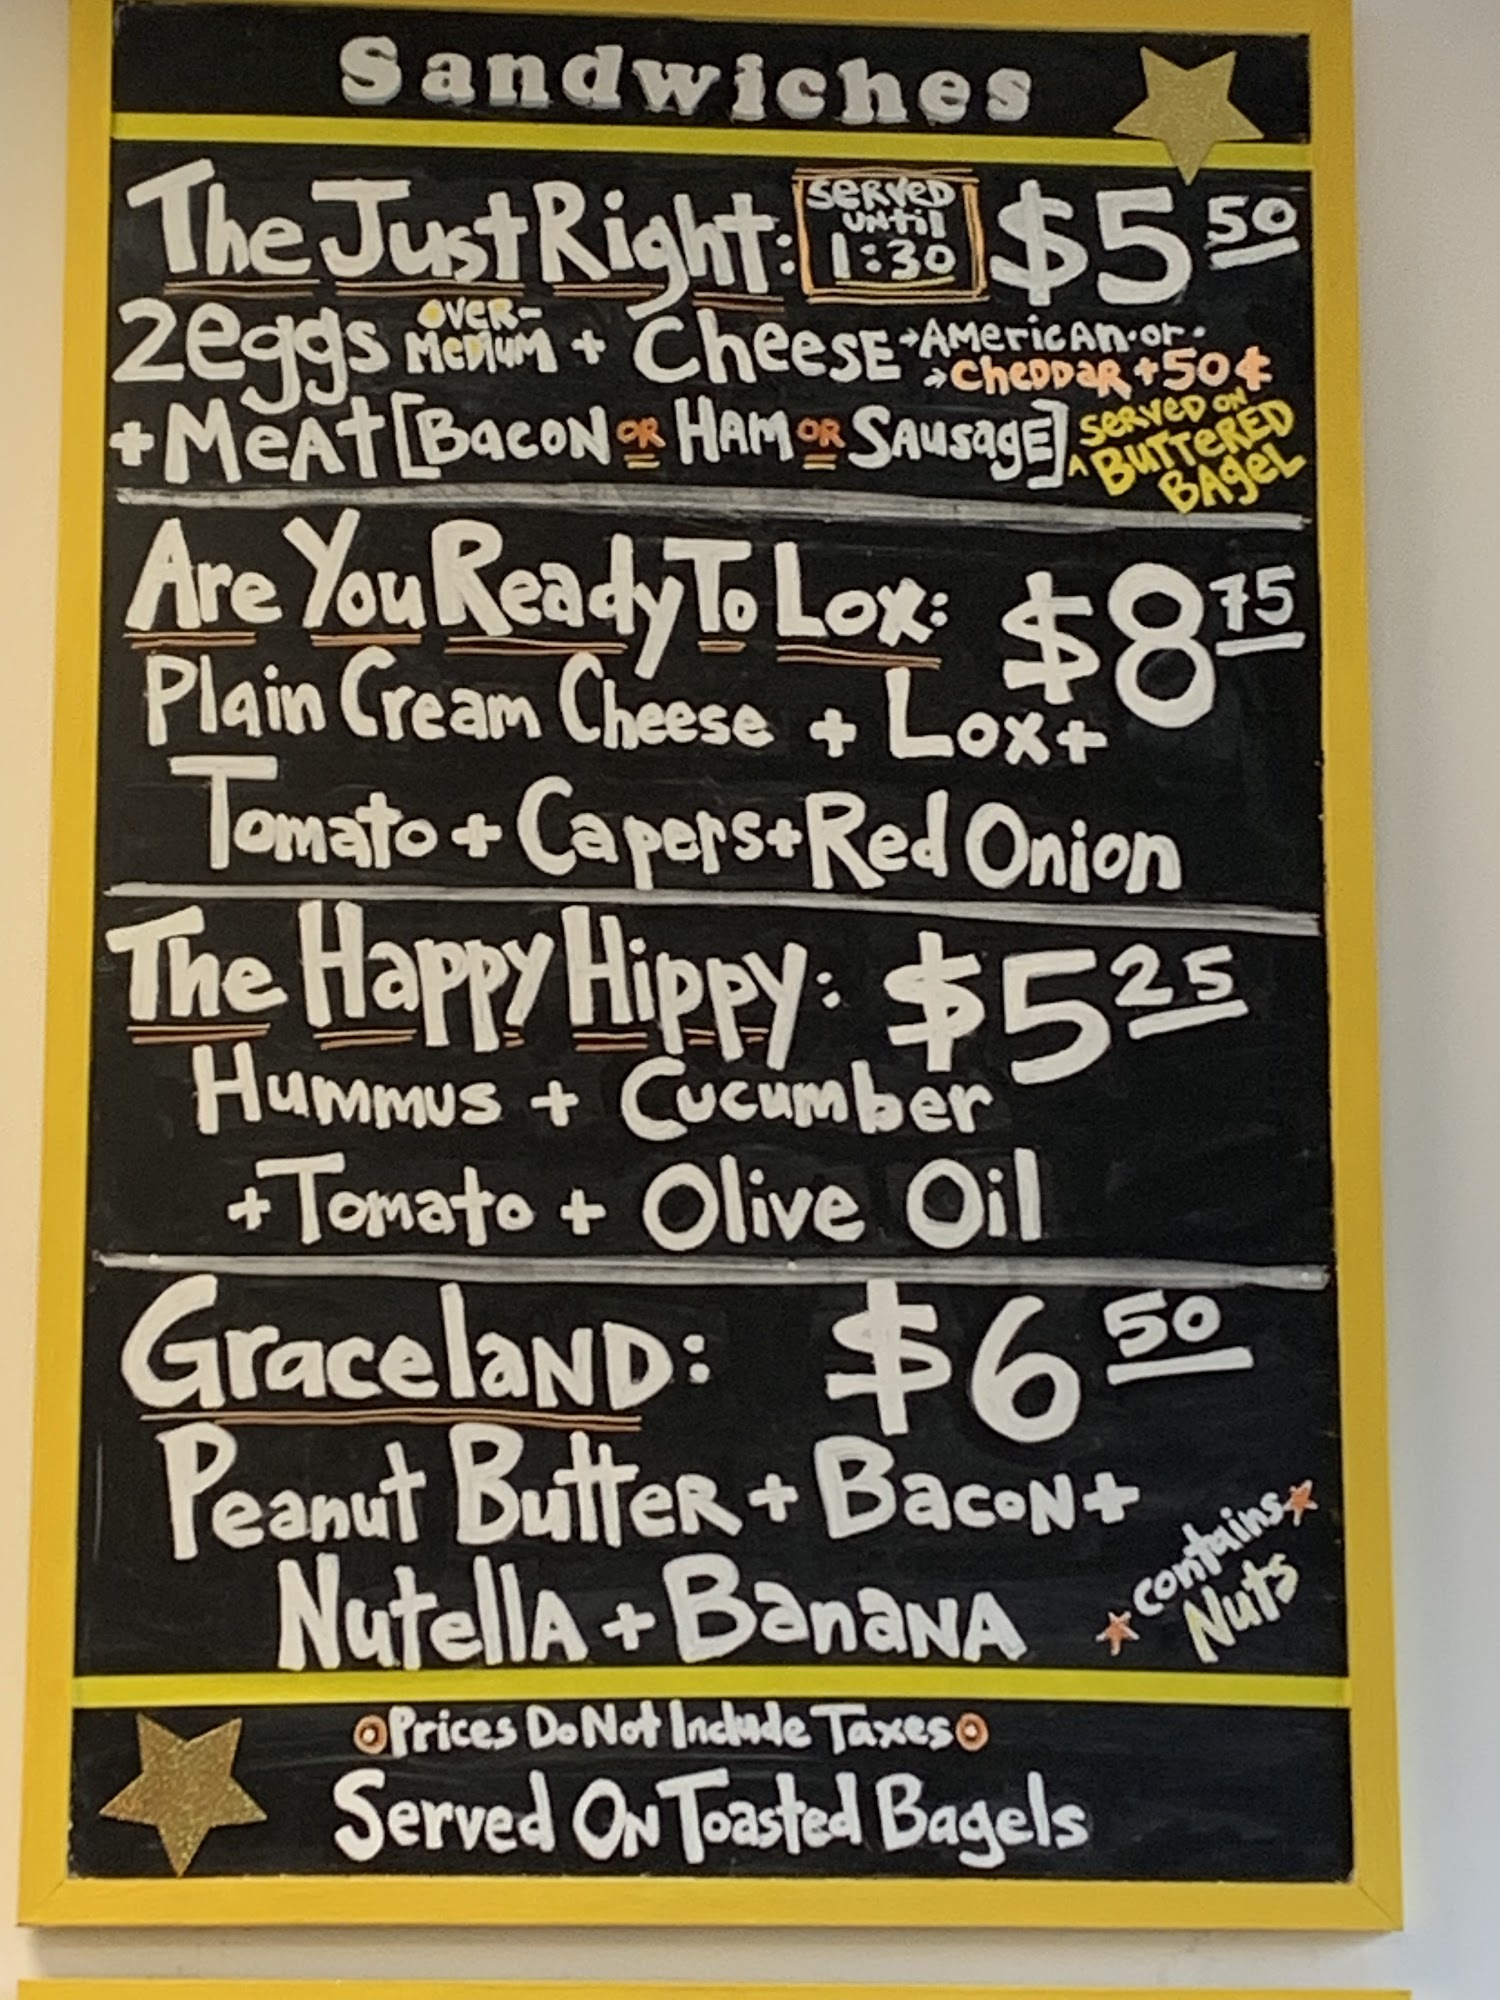 Sandwiches
The Just Right: Served until 1:30 $5 50
2 eggs over-medium + Cheese → American · or ·
→ Cheddar + 50¢
+ Meat [Bacon or Ham or Sausage] served on a Buttered Bagel
Are You Ready To Lox: $8 75
Plain Cream Cheese + Lox +
Tomato + Capers + Red Onion
The Happy Hippy: $5 25
Hummus + Cucumber
+ Tomato + Olive Oil
Graceland: $6 50
Peanut Butter + Bacon +
Nutella + Banana
contains
Nuts
Prices Do Not Include Taxes
Served On Toasted Bagels